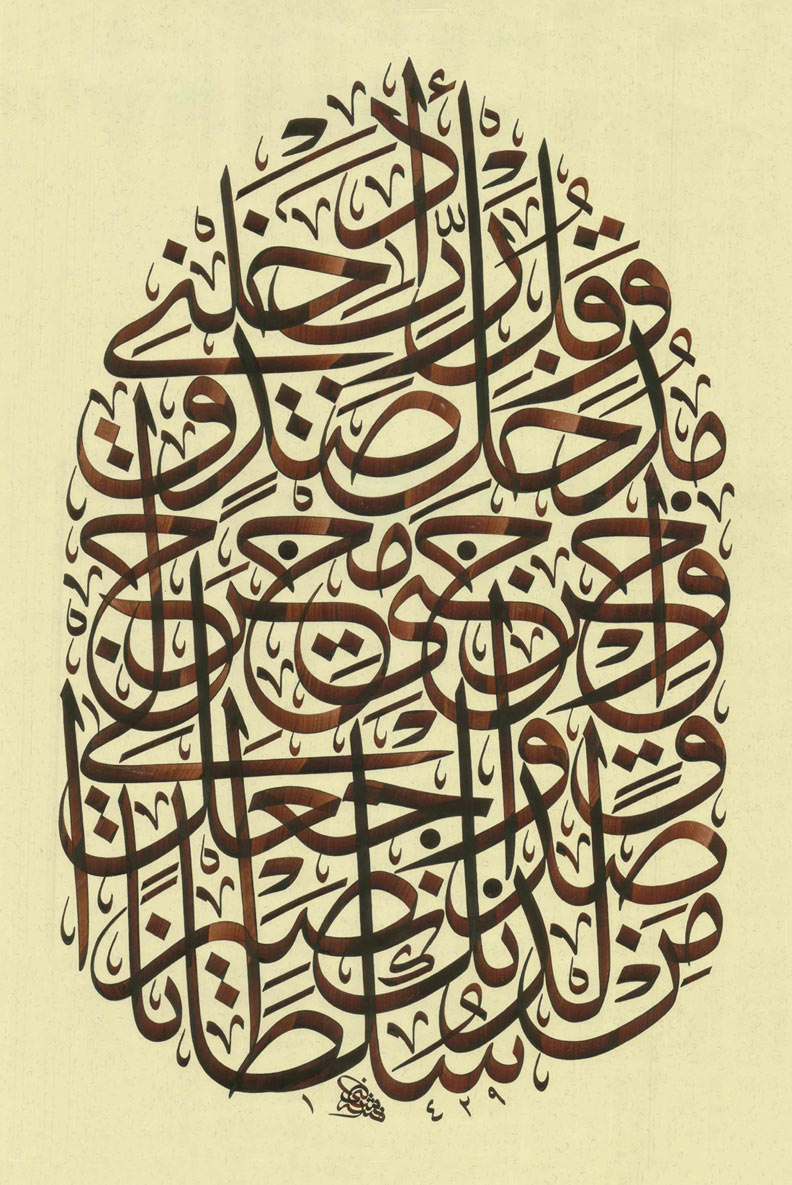 وَقُلْ رَبِّ أَدْخِلْنِي
مُدْخَلَ صِدْقٍ
وَأَخْرِجْنِي مُخْرَجَ
صِدْقٍ وَاجْعَلْ لِي
مِنْ لَدُنْكَ سُلْطَانًا نَصِيرًا
١٤٢٩